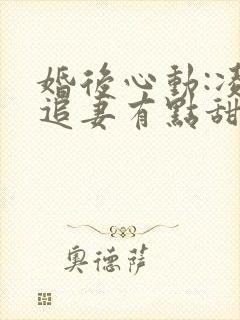 婚後心動:凌
追妻有點甜
奧德薩